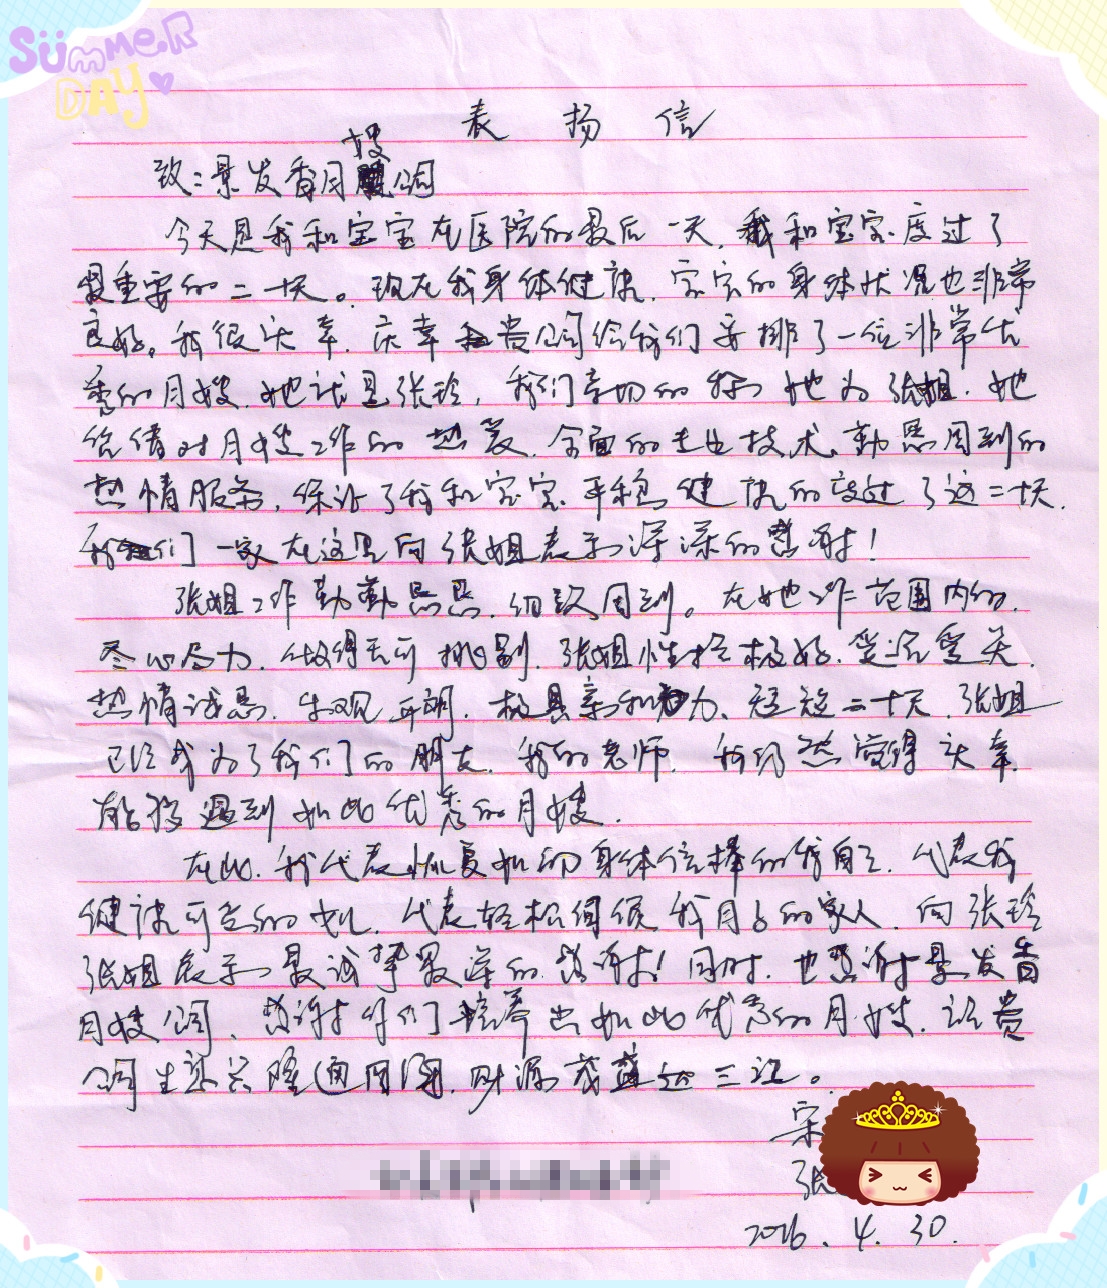 SUMMER
DAY
表扬信
致：景发香月嫂公司
今天是我和宝宝在医院的最后一天，我和宝宝度过了
最重要的二十天。现在我身体健康，宝宝的身体状况也非常
良好。我很庆幸，庆幸贵公司给我们安排了一位非常优
秀的月嫂，她就是张珍，我们亲切的称她为张姐，她
凭借对月嫂工作的热爱，全面的专业技术，勤恳周到的
热情服务，保证了我和宝宝平稳健康的度过了这二十天，
我们一家在这里向张姐表示深深的感谢！
张姐工作勤勤恳恳，细致周到。在她工作范围内的，
尽心尽力，做得无可挑剔，张姐性格极好，
热情诚恳，乐观开朗，极具亲和力，短短二十天，张姐
已经成为了我们的朋友，我的老师，我仍然觉得庆幸，
能够遇到如此优秀的月嫂。
在此，我代表恢复如初身体倍棒的我自己，代表我
健康可爱的，代表轻松伺候我月子的家人，向张珍
张姐表示最诚挚最深的感谢！同时，也感谢景发香
月嫂公司，感谢你们培养出如此优秀的月嫂，祝贵
公司生意兴隆通四海，财源茂盛达三江。
宋
张
2016.4.30.